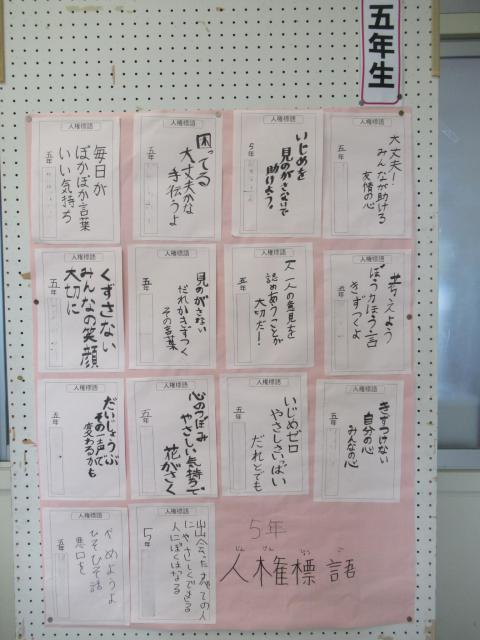 五年生
人権標語
大丈夫！
みんなが助ける
友情の心
五年
人権標語
いじめを
見のがさないで
助けよう。
5年
人権標語
困ってる
大丈夫かな
手伝うよ
五年
人権標語
毎日が
ぽかぽか言葉
いい気持ち
五年
人権標語
考えよう
ぼう力ぼう言
きずつくよ
五年
人権標語
一人一人の意見を
認めあうことが
大切だ！
五年
人権標語
見のがさない
だれかきずつく
その言葉
五年
人権標語
くずさない
みんなの笑顔
大切に
五年
人権標語
きずつけない
自分の心
みんなの心
五年
人権標語
いじめゼロ
やさしさいっぱい
だれとでも
五年
人権標語
心のつぼみ
やさしい気持ちで
花がさく
五年
人権標語
だいじょうぶ
その一声で
変わるかも
五年
人権標語
出会ったすべての人
にやさしくできる
人にぼくはなる
5年
人権標語
やめようよ
ひそひそ話
悪口を
五年
5年
じん けん ひょう ご
人権標語